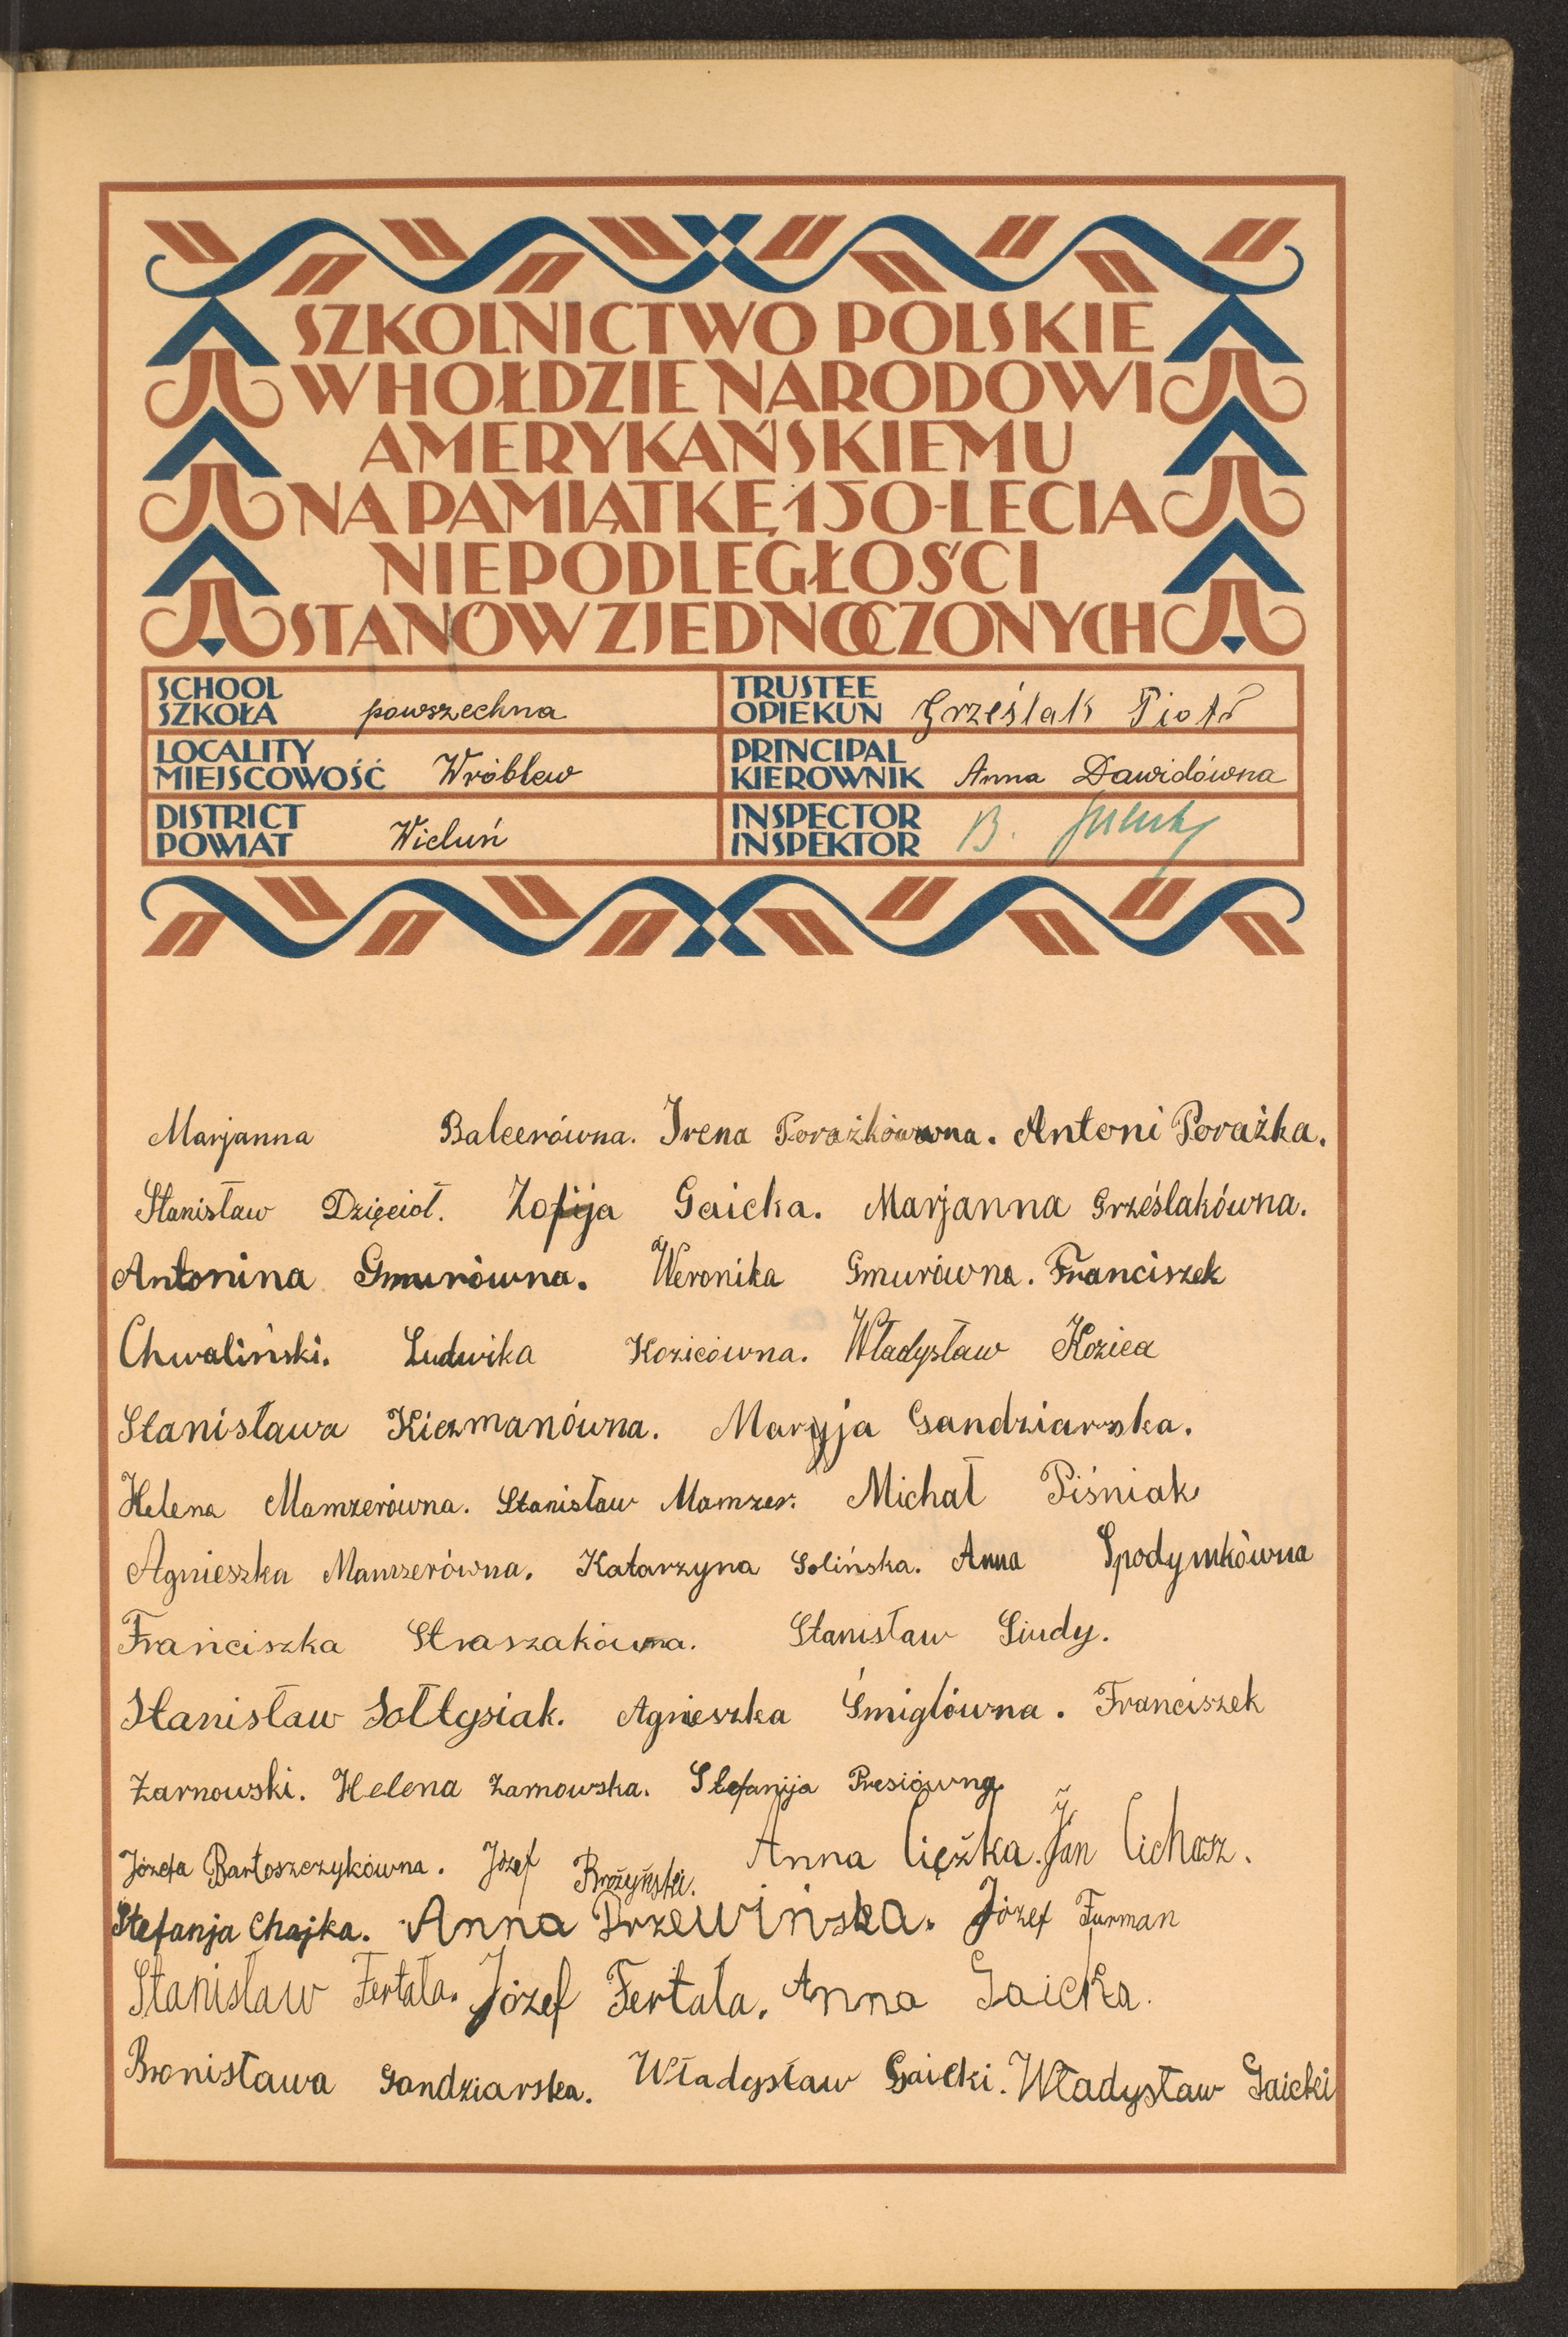 SZKOLNICTWO POLSKIE
W HOŁDZIE NARODOWI
AMERYKAŃSKIEMU
NA PAMIĄTKĘ 150-LECIA
NIEPODLEGŁOŚCI
STANÓW ZJEDNOCZONYCH
SCHOOL
SZKOŁA powszechna
TRUSTEE
OPIEKUN Grześlak Piotr
LOCALITY
MIEJSCOWOŚĆ Wróblew
PRINCIPAL
KIEROWNIK Anna Dawidówna
DISTRICT
POWIAT Wieluń
INSPECTOR
INSPEKTOR B.
Marjanna Balcerówna. Irena Porażkówna. Antoni Porażka.
Stanisław Dzięcioł. Zofija Gaicka. Marjanna Grześlakówna.
Antonina Gmurówna. Weronika Gmurówna. Franciszek
Chwaliński. Ludwika Kozicówna. Władysław Kozica
Stanisława Kiczmanówna. Maryja Gandziarska.
Helena Mamzerówna. Stanisław Mamzer. Michał Piśniak
Agnieszka Mamzerówna. Katarzyna Solińska. Anna Spodymkówna
Franciszka Straszakówna. Stanisław Siudy.
Stanisław Sołtysiak. Agnieszka Śmiglówna. Franciszek
Żarnowski. Helena Żarnowska. Stefanija Presiówna
Józefa Bartoszczykówna. Józef Brożyński. Anna Ciężka. Jan Cichosz.
Stefanja Chajka. Anna Drzewińska. Józef Furman
Stanisław Fertała. Józef Fertała. Anna Gaicka.
Bronisława Gandziarska. Władysław Gaicki. Władysław Gaicki